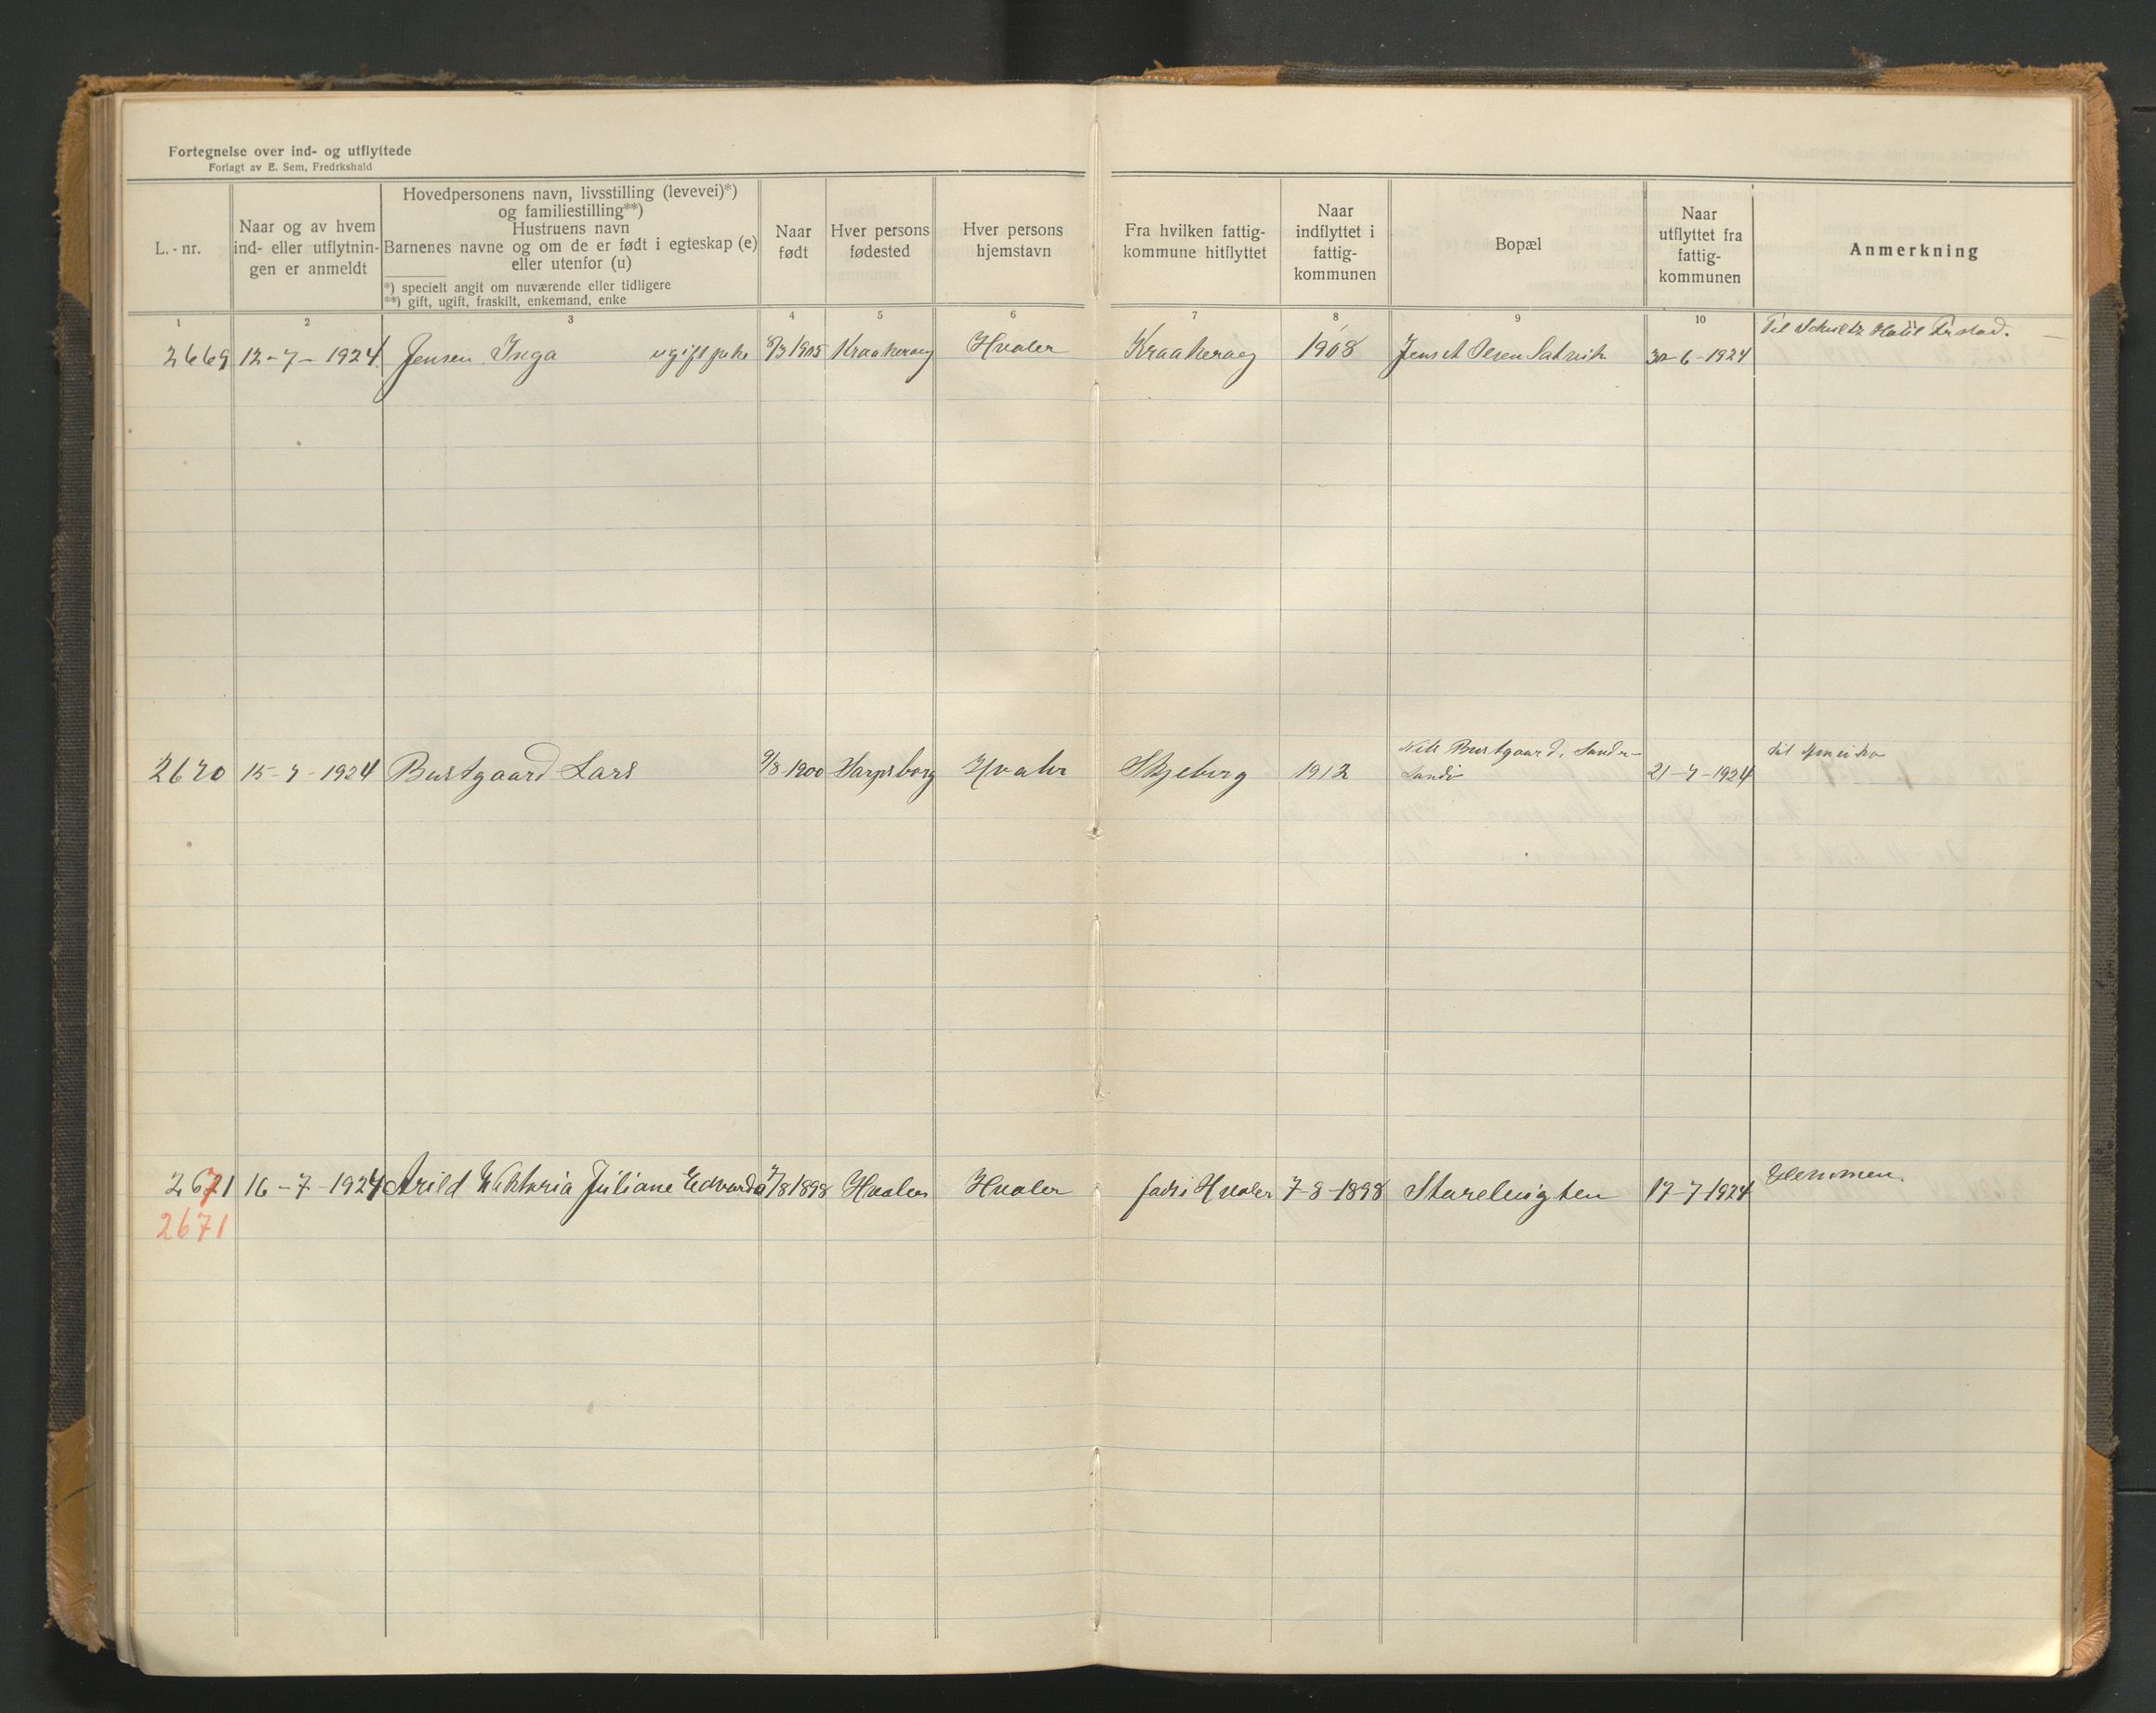 Fortegnelse over ind- og utflyttede
Forlagt av E. Sem, Fredrkshald
L.-nr.
Naar og av hvem
ind- eller utflytnin-
gen er anmeldt
Hovedpersonens navn, livsstilling (levevei)*)
og familiestilling**)
Hustruens navn
Barnenes navne og om de er født i egteskap (e)
eller utenfor (u)
*) specielt angit om nuværende eller tidligere
**) gift, ugift, fraskilt, enkemand, enke
Naar
født
Hver persons
fødested
Hver persons
hjemstavn
Fra hvilken fattig-
kommune hitflyttet
Naar
indflyttet i
fattig-
kommunen
Bopæl
Naar
utflyttet fra
fattig-
kommunen
Anmerkning
1 2 3 4 5 6 7 8 9 10
2669 12-7-1924 Jensen Inga ugift 8/3 1905 Kraakerøy Hvaler Kraakerøy 1908 30-6-1924 Til Hotel
2670 15-7-1924 Bustgaard Lars 9/8 1900 Sarpsborg Hvaler Skjeberg 1912 Nils Bustgaard, Søndre
Sandø 21-7-1924 til Amerika
2671 16-7-1924 Arild Viktoria Juliane Edvarda 7/8 1898 Hvaler Hvaler født i Hvaler 7-8-1898 17-7-1924 Glemmen.
2671